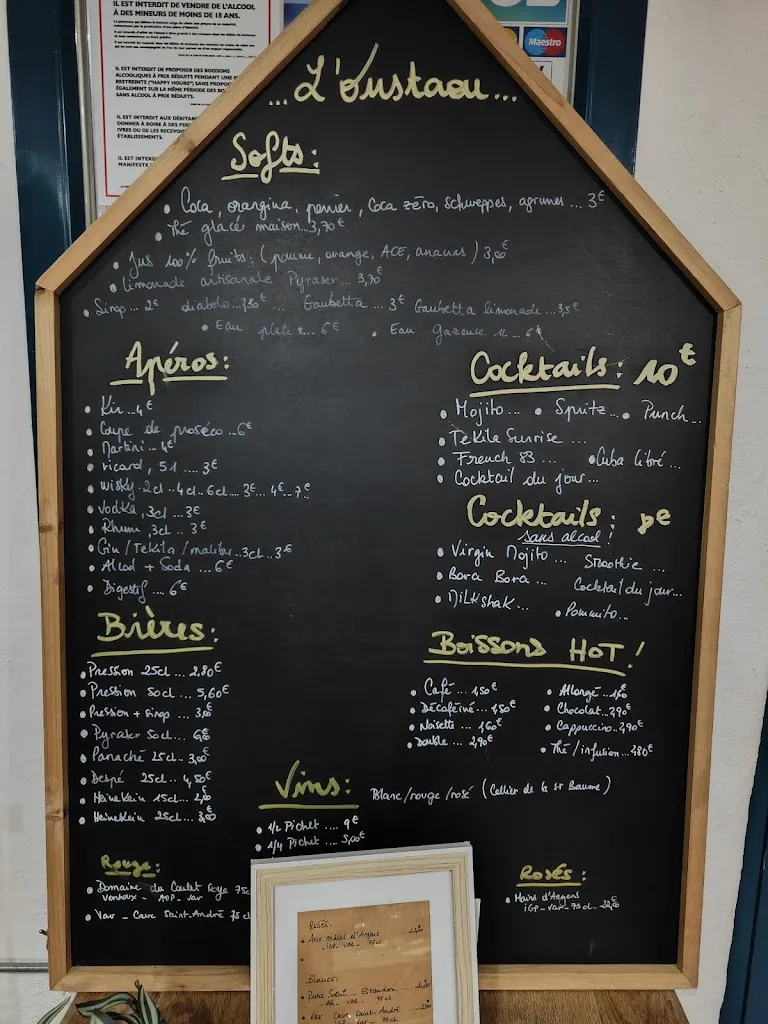 IL EST INTERDIT DE VENDRE DE L'ALCOOL
À DES MINEURS DE MOINS DE 18 ANS.
IL EST INTERDIT DE PROPOSER DES BOISSONS
ALCOOLIQUES À PRIX RÉDUITS PENDANT UNE
RESTREINTE ("HAPPY HOURS") SANS
ÉGALEMENT SUR LA MÊME PÉRIODE DES
SANS ALCOOL À PRIX RÉDUITS.
IL EST INTERDIT AUX
DONNER À BOIRE À DES
IVRES OU DE LES
ÉTABLISSEMENTS.
IL EST
MANIFESTE
Maestro
...L'Oustaou...
Softs:
• Coca, orangina, perrier, Coca zéro, schweppes, agrumes ... 3€
• Thé glacé maison...3,70€
• Jus 100% fruits: (pomme, orange, ACE, ananas) 3,00€
• Limonade artisanale Pyraser... 3,70€
• Sirop... 2€ diabolo...2,50€ ... Gambetta ... 3€ Gambetta limonade...3,5€
• Eau plate ... 6€ • Eau gazeuse 1L ... 6€
Apéros:
• Kir...4€
• Coupe de proséco...6€
• Martini...4€
• ricard, 51....3€
• wisky 2cl..4cl..6cl...3€...4€..7€
• vodka, 3cl...3€
• Rhum, 3cl.. 3€
• Gin/Tekila/malibu..3cl..3€
• Alcool + Soda ...6€
• Digestif....6€
Cocktails: 10€
• Mojito... • Spritz... • Punch...
• Tekila Sunrise ...
• French 83... • Cuba libré...
• Cocktail du jour...
Cocktails: 8€
sans alcool!
• Virgin Mojito ... Smoothie ...
• Bora Bora ... Cocktail du jour...
• Milkshak... • Pommito...
Bières:
• Pression 25cl ... 2,80€
• Pression 50cl ... 5,60€
• Pression + sirop ... 3,00€
• Pyraser 50cl... 6€
• Panaché 25cl.. 3,00€
• Despé 25cl.. 4,50€
• Heinekein 15cl... 2,00€
• Heinekein 25cl... 3,00€
Boissons HOT!
• Café ... 1,50€ • Allongé...1,60€
• Décaféiné ... 1,50€ • Chocolat...2,90€
• Noisette ... 1,60€ • Cappuccino..2,90€
• Double ... 2,90€ • Thé/infusion...2,80€
Vins: Blanc/rouge/rosé (Cellier de la St Baume)
• 1/2 Pichet .... 9€
• 1/4 Pichet .... 5,00€
Rouge:
• Domaine du Coulet Roye 75c
Ventoux - AOP - Var
• Var - Cave Saint-André 75 cl
Rosés:
• Mairs d'Argens
IGP - Var - 75cl..
Rosés:
Blancs:
• Var Cave Saint-André